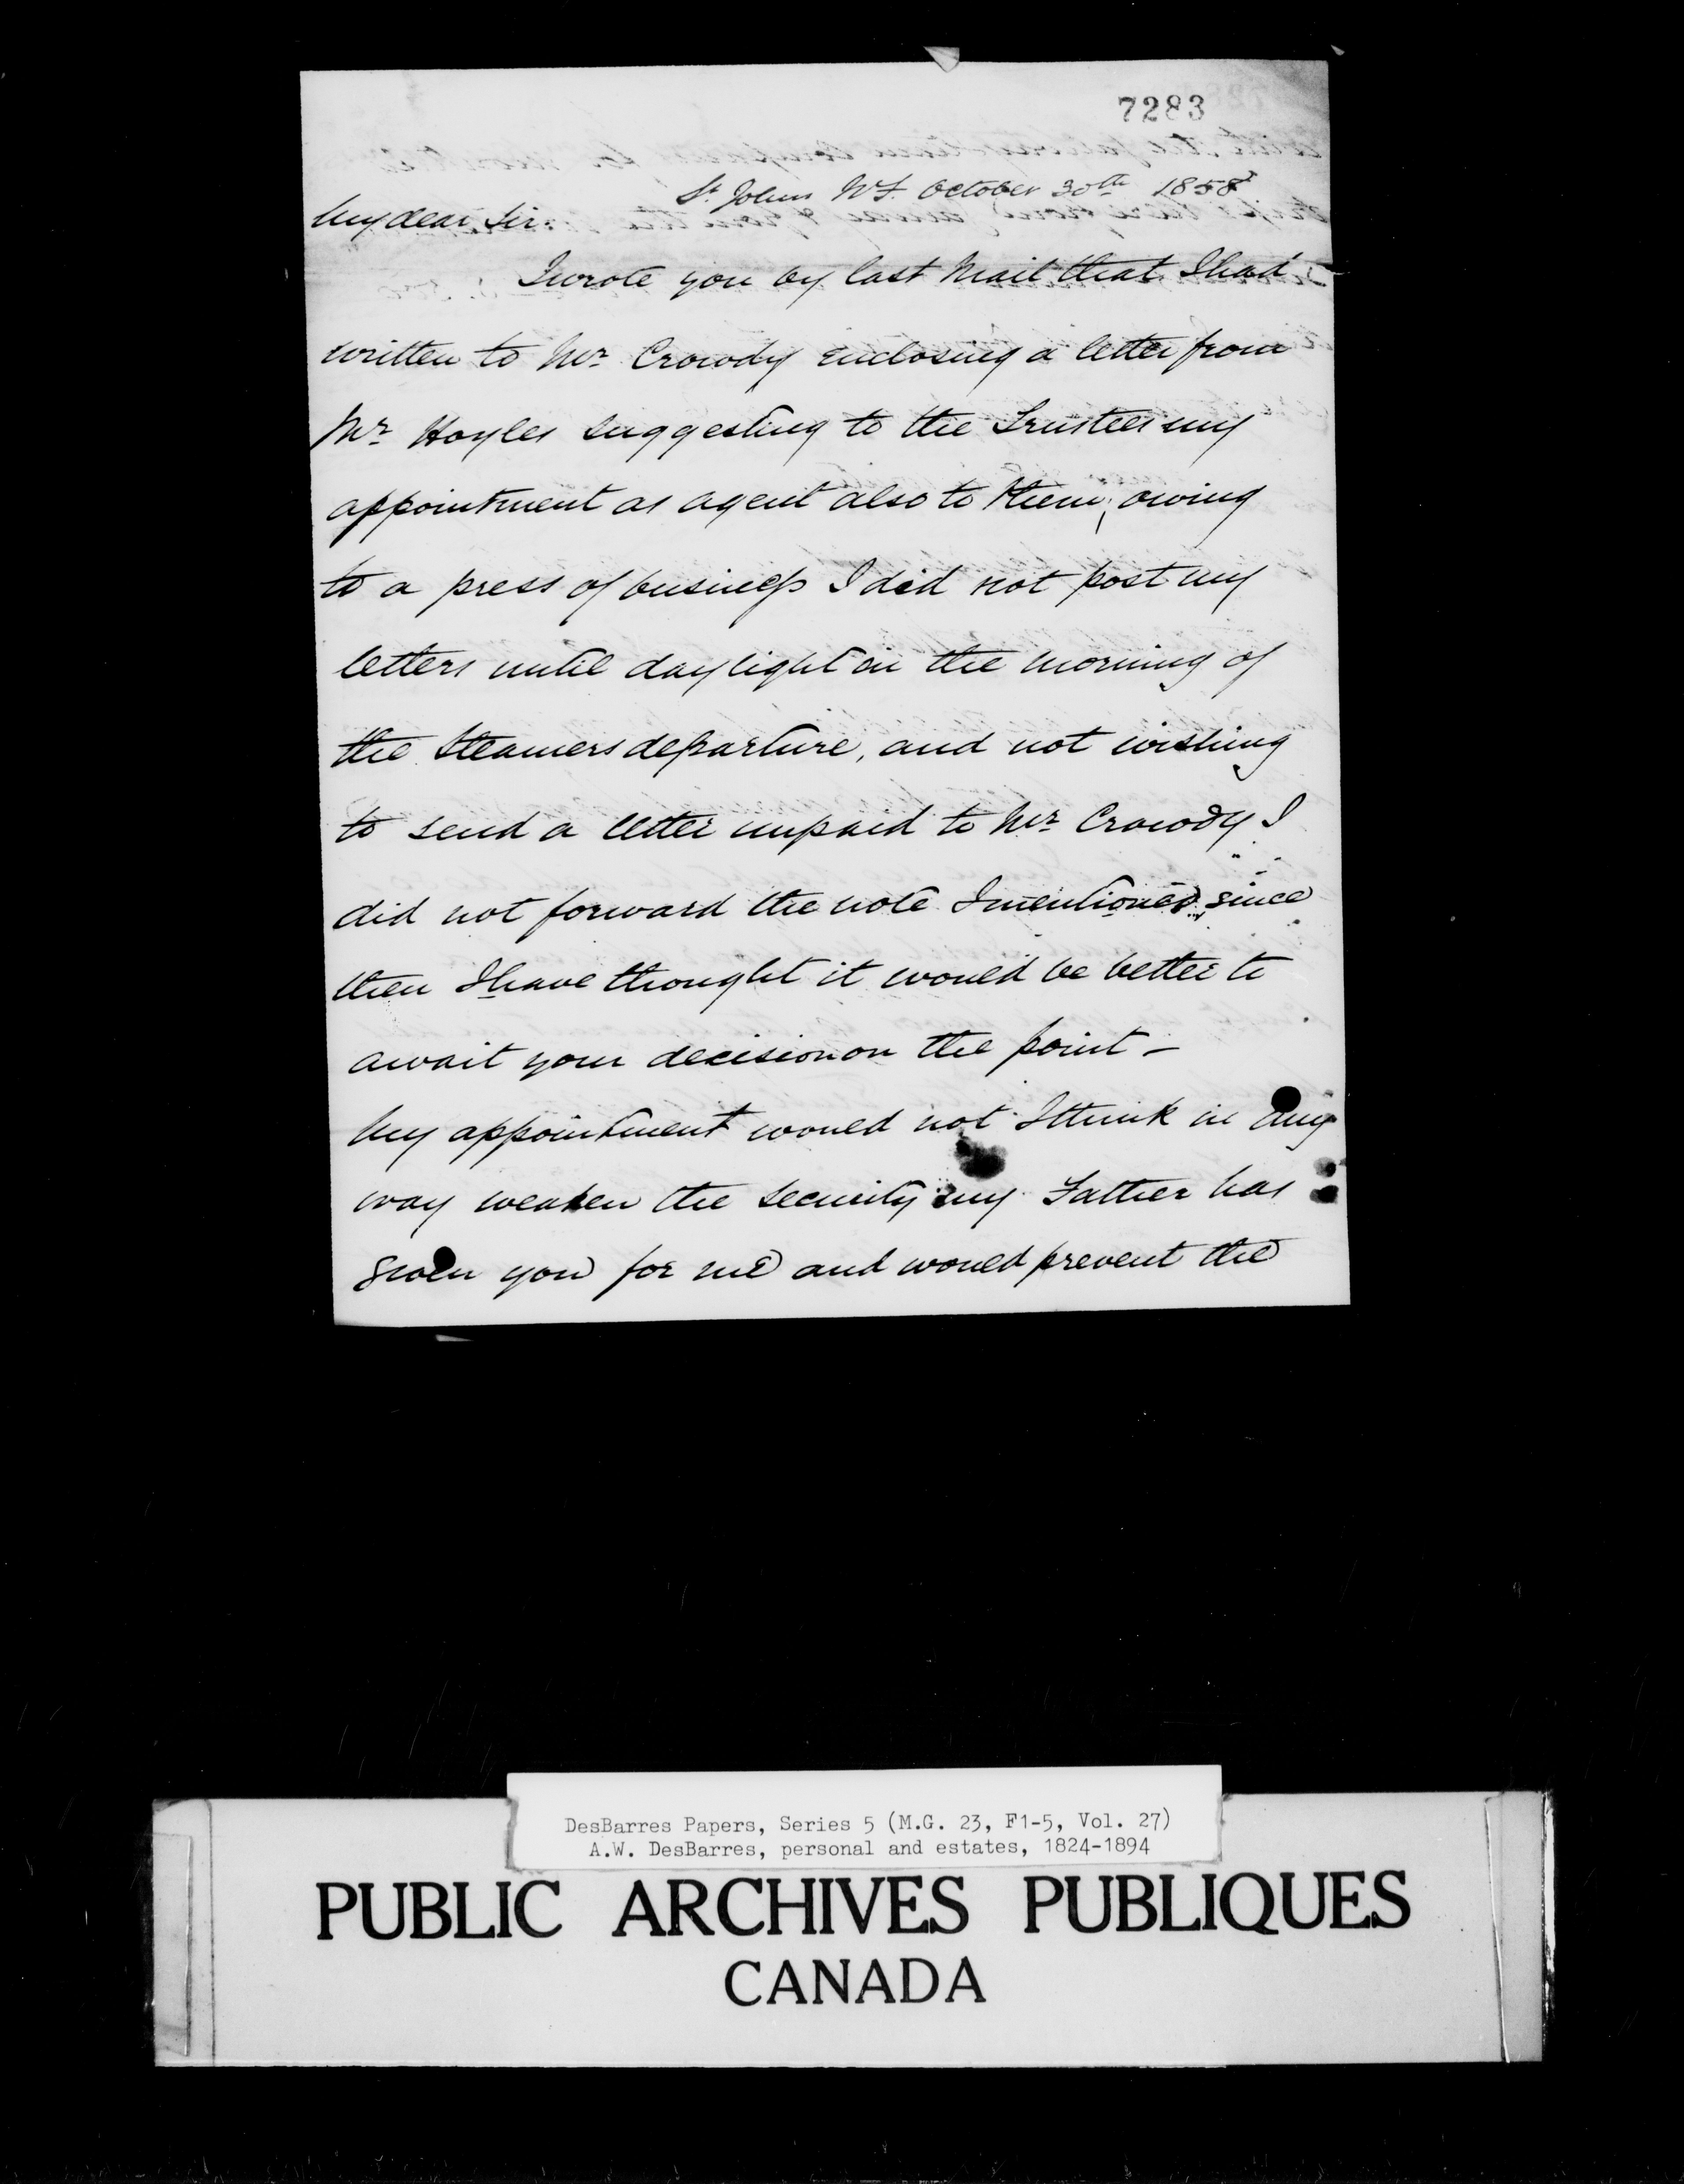 7283
St. Johns N.F. October 30th 1858
My dear Sir.
I wrote you by last Mail that I had
written to Mr. Crowdy enclosing a letter from
Mr. Hoyles suggesting to the Trustees my
appointment as agent also to them, owing
to a press of business I did not post my
letters until daylight on the morning of
the Steamers departure, and not wishing
to send a letter unpaid to Mr. Crowdy I
did not forward the note I mentioned, since
then I have thought it would be better to
await your decision on the point –
My appointment would not I think in any
way weaken the security my Father has
given you for me and would prevent the
DesBarres Papers, Series 5 (M.G. 23, F1-5, Vol. 27)
A.W. DesBarres, personal and estates, 1824-1894
PUBLIC ARCHIVES PUBLIQUES
CANADA